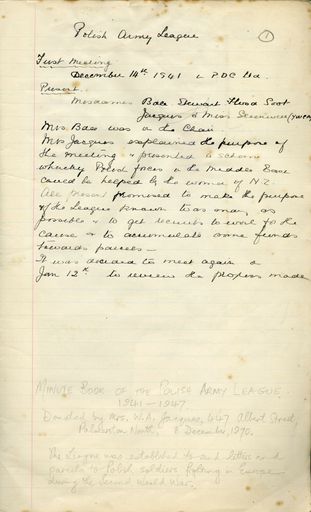 Polish Army League
1
First Meeting
December 14th 1941 in P.D.C Ltd.
Present.
Mesdames Bade Stewart Scott
Jacques & Miss
Mrs Bade was in the Chair.
Mrs Jacques explained the purpose of
the meeting & presented a scheme
whereby Polish forces in the Middle East
could be helped by the women of N.Z.
All present promised to make the purpose
of the League known to as many as
possible & to get recruits to work for the
cause & to accumulate some funds
towards parcels —
It was decided to meet again on
Jan 12th to review the progress made
MINUTE BOOK OF THE POLISH ARMY LEAGUE.
1941 - 1947
Donated by Mrs. W.A. Jacques, 447 Albert Street,
Palmerston North. 8 December, 1970.
The League was established to send letters and
parcels to Polish soldiers fighting in Europe
during the Second World War.